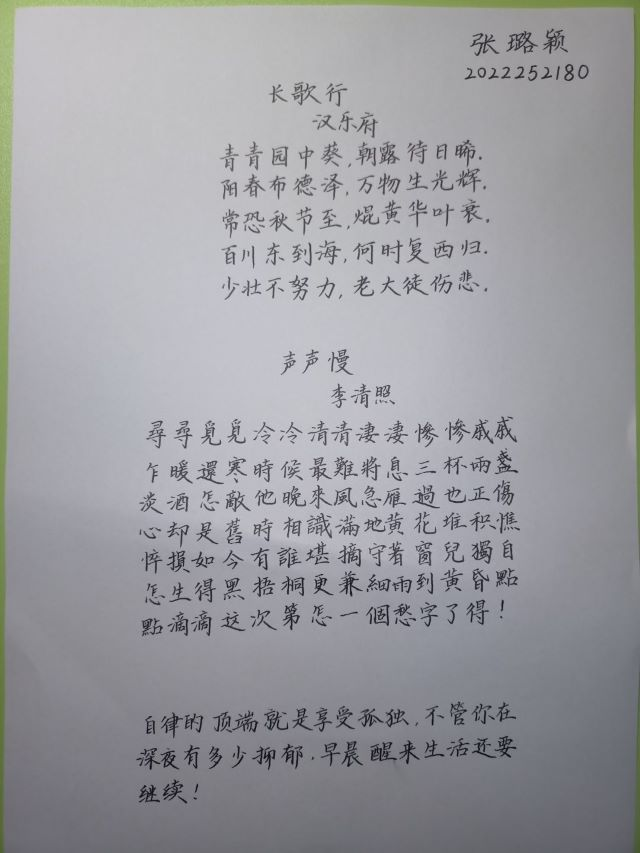 张璐颖
2022252180
长歌行
汉乐府
青青园中葵,朝露待日晞.
阳春布德泽,万物生光辉.
常恐秋节至,焜黄华叶衰.
百川东到海,何时复西归.
少壮不努力,老大徒伤悲.
声声慢
李清照
尋尋覓覓冷冷清清淒淒慘慘戚戚
乍暖還寒時候最難將息三杯兩盞
淡酒怎敵他晚來風急雁過也正傷
心却是舊時相識滿地黄花堆积憔
悴損如今有誰堪摘守著窗兒獨自
怎生得黑梧桐更兼細雨到黄昏點
點滴滴这次第怎一個愁字了得!
自律的顶端就是享受孤独,不管你在
深夜有多少抑郁.早晨醒来生活还要
继续!